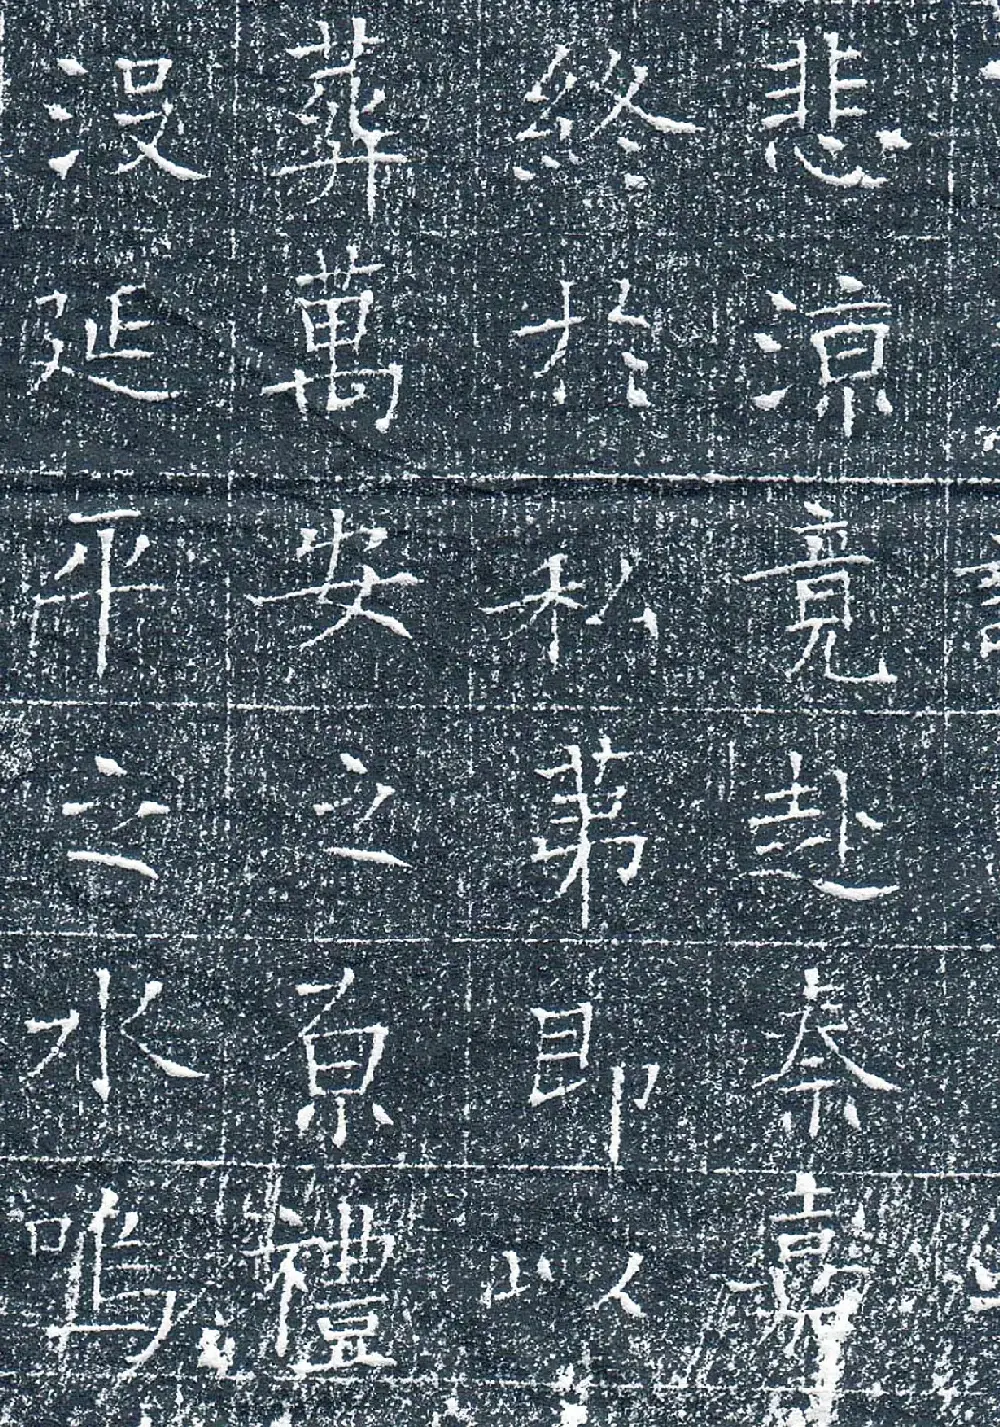 悲涼竟赴泰嘉
終於私第即以
葬萬安之原禮
沒延平之水嗚